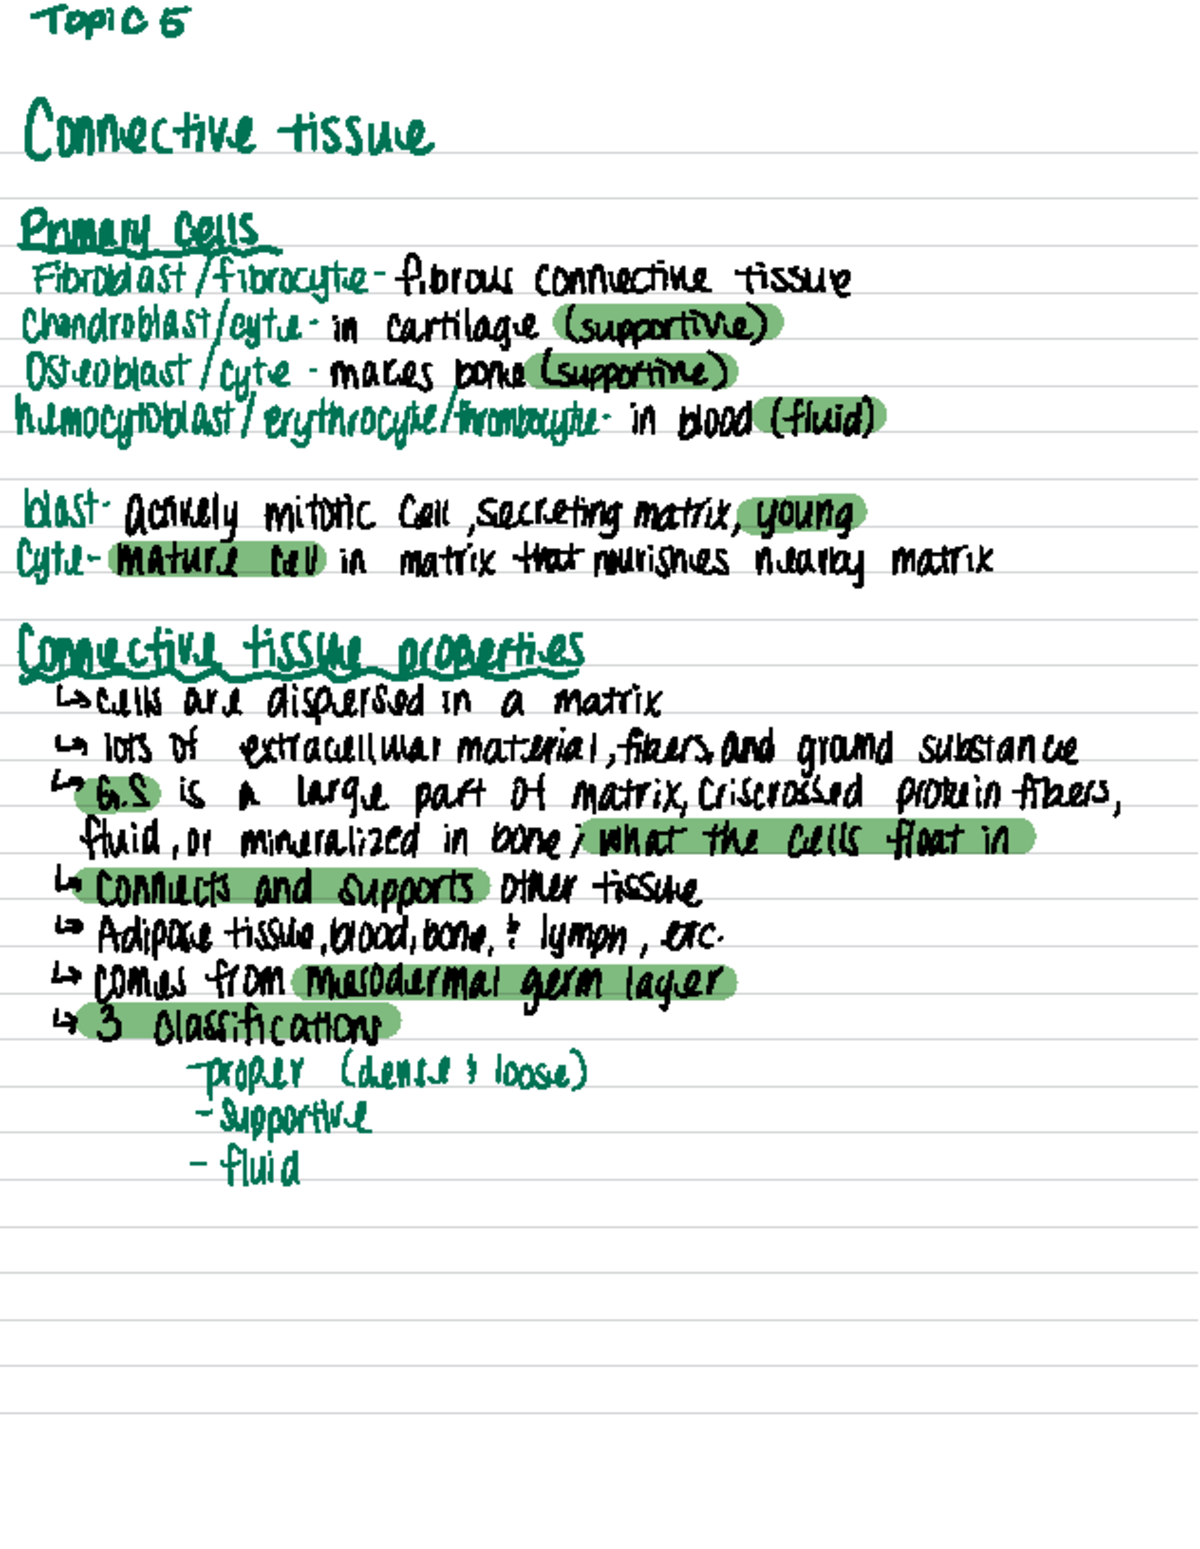 Topic 5
Connective tissue
Primary Cells
Fibroblast/fibrocyte - fibrous connective tissue
Chondroblast/cyte - in cartilage (supportive)
Osteoblast/cyte - makes bone (supportive)
hemocytoblast/erythrocyte/thrombocyte - in blood (fluid)
blast - actively mitotic cell, secreting matrix, young
Cyte - mature cell in matrix that nourishes nearby matrix
Connective tissue properties
↳ cells are dispersed in a matrix
↳ lots of extracellular material, fibers, and ground substance
↳ G.S is a large part of matrix, criscrossed protein fibers,
fluid, or mineralized in bone; what the cells float in
↳ connects and supports other tissue
↳ Adipose tissue, blood, bone, & lymph, etc.
↳ comes from mesodermal germ layer
↳ 3 classifications
- proper (dense & loose)
- supportive
- fluid